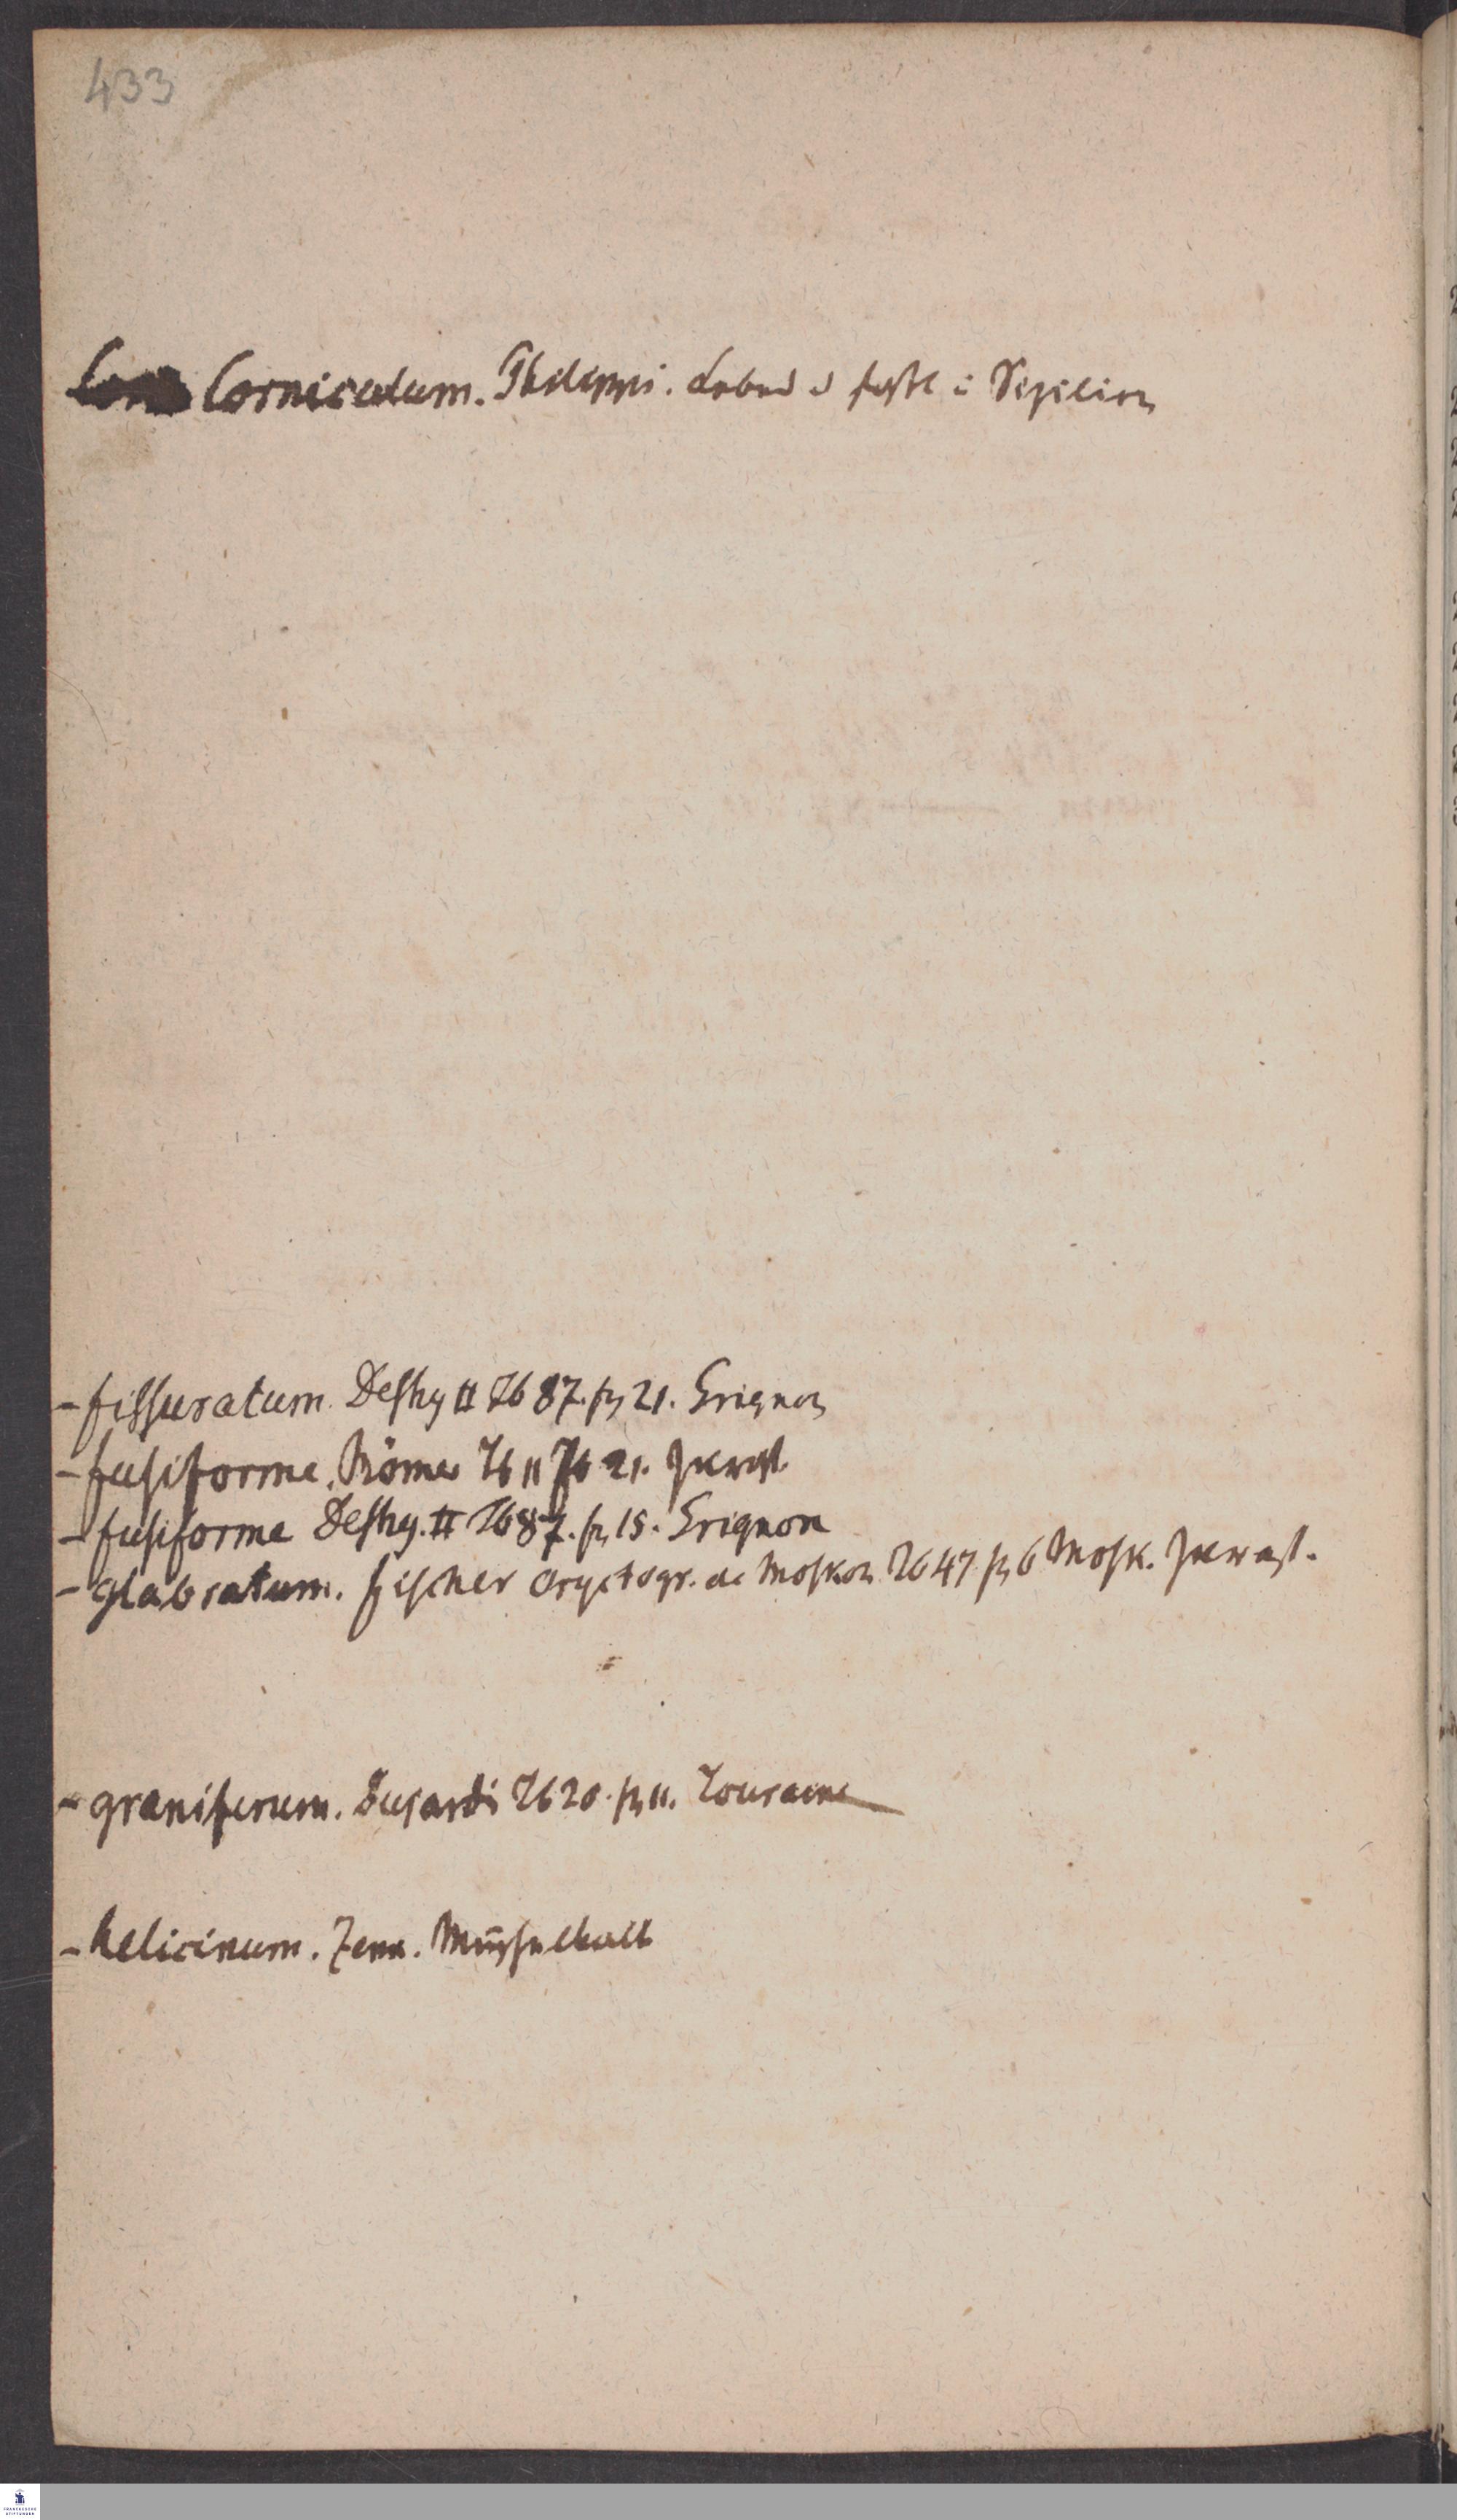 433
Corniculum. Philippi. Lebend u fossil i Sizilien
- fissuratum. Deshy II Tb 87. fg 21. Grignon
- fusiforme. Römer Tb 11 fg 21. Jurat.
- fusiforme Deshy. II Tb 87. fg 15. Grignon
- glabratum. Fischer Oryctogr. de Moskou Tb 47 fg 6 Mosk. Jurast.
- graniferum. Dujardi Tb 20. fg 11. Touraine
- helicinum. Zenk. Muschelkalk
FRANCKESCHE
STIFTUNGEN